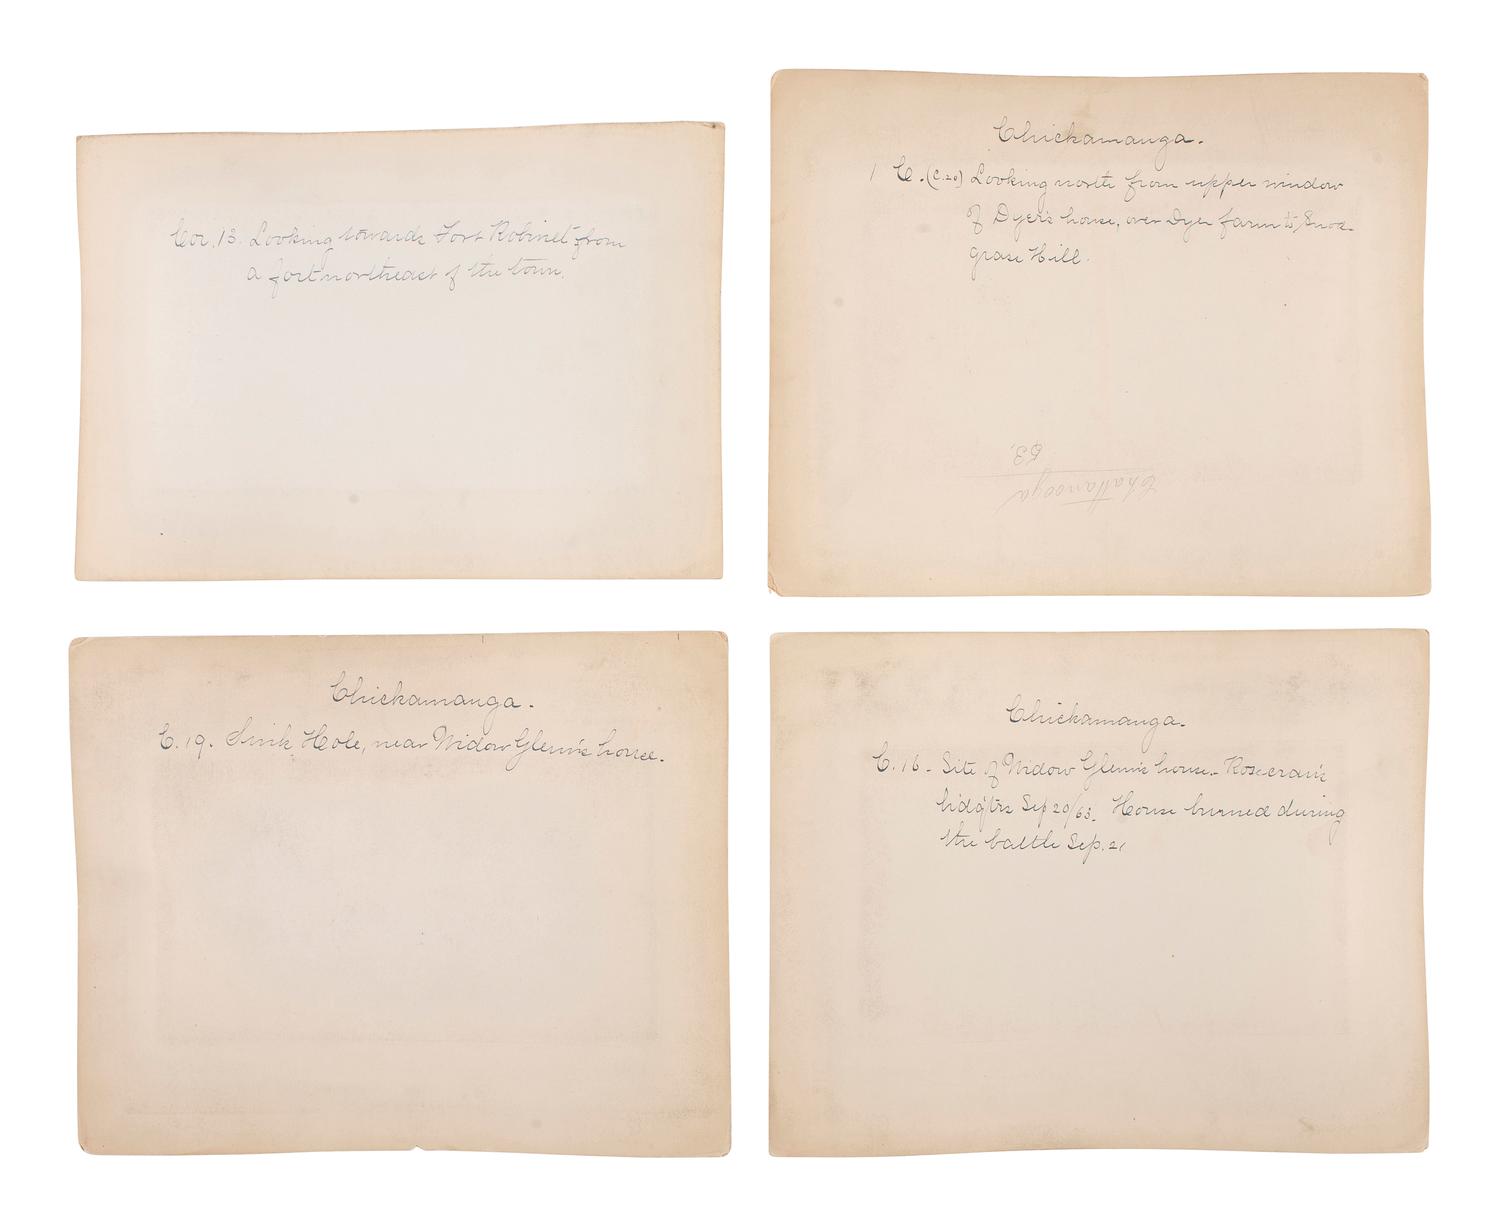 Cor. 13. Looking towards Fort Robinet from
a fort northeast of the town.
Chickamauga.
1 C. (C.20) Looking north from upper window
of Dyer's house, over Dyer farm to Snod-
grass Hill.
Chattanooga
63.
Chickamauga.
C. 19. Sink Hole, near Widow Glenn's house.
Chickamauga.
C. 16 - Site of Widow Glenn's house - Rosecran's
hdq'trs Sep 20/63. House burned during
the battle Sep. 21